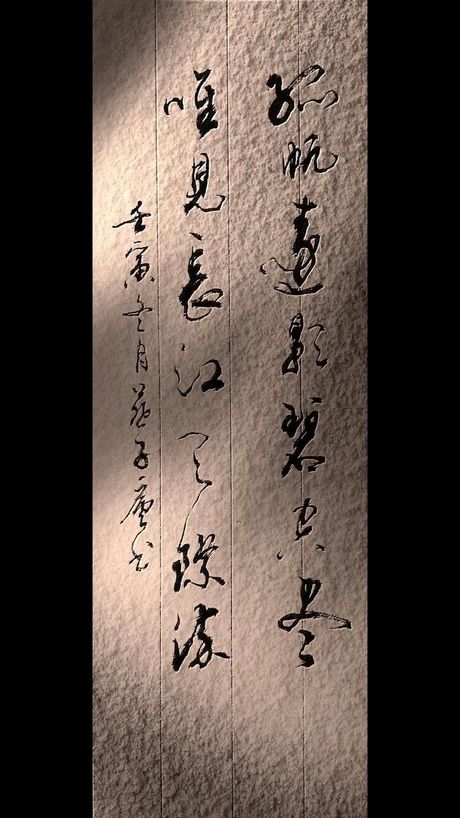 孤帆遠影碧空尽
唯見長江天際流
壬寅冬月子书